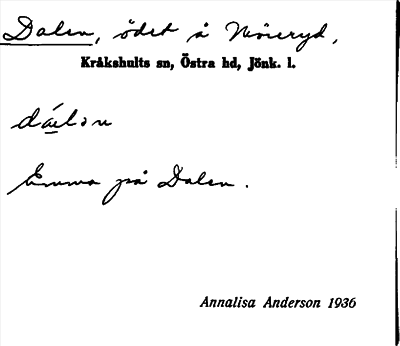 Dalen, ödet å Möeryd,
Kråkshults sn, Östra hd, Jönk. l.
Emma på Dalen.
Annalisa Anderson 1936